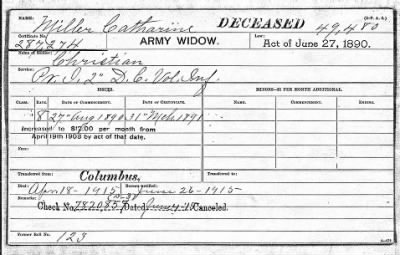 NAME: Miller Catharine DECEASED 49,480
Certificate No. 287,274 ARMY WIDOW. Law: Act of June 27, 1890.
Name of Soldier: Christian
Pv. I, 2" D.C. Vol. Inf.
CLASS. RATE. DATE OF COMMENCEMENT. DATE OF CERTIFICATE. DATE OF COMMENCEMENT. DATE OF CERTIFICATE.
8 27" Aug 1890 31" Mch 1891
Increased to $12.00 per month from
April 19th 1908 by act of that date.
Transferred from Columbus, Transferred to
Died: Apr 18-1915 Bureau notified: June 26-1915
Remarks:
Check No. 782085 Dated Canceled.
Former Roll No. 123